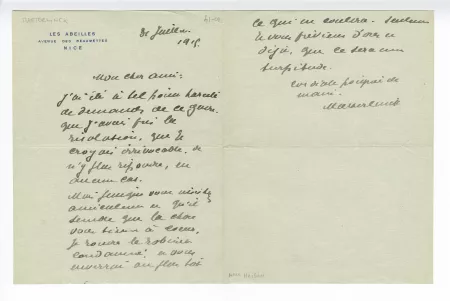 MAETERLINCK
LES ABEILLES
AVENUE DES BAUMETTES
NICE
31 Juillet
1918.
Mon cher ami:
J'ai été à tel point harcelé
de demandes de ce genre,
que j'avais pris la
résolution, que je
croyais irrévocable, de
n'y plus répondre, en
aucun cas.
Mais puisque vous insistez
amicalement et qu'il
semble que la chose
vous tient à coeur,
je rouvre le robinet
condamné, et vous
enverrai au plus tôt
ce qui en coulera. Seulement
je vous préviens d'ores et
déjà, que ce sera une
turpitude.
Cordiale poignée de
main.
Maeterlinck